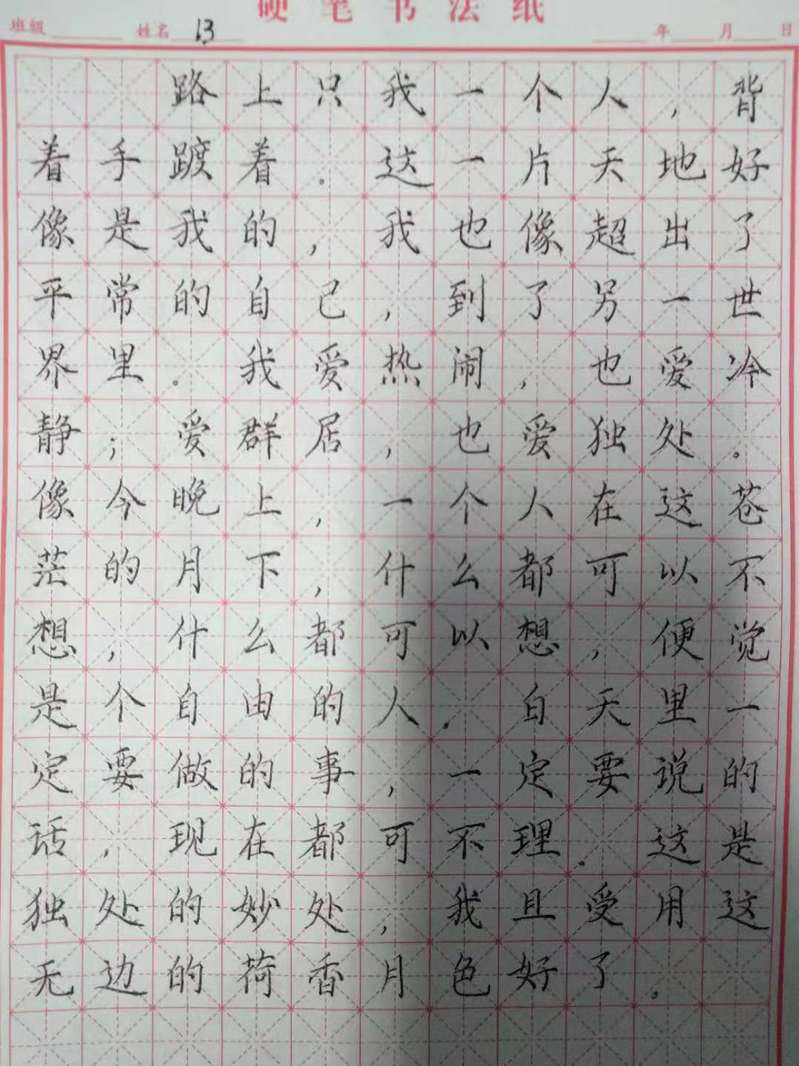 硬笔书法纸
班级 姓名 13 年 月 日
路上只我一个人，背
着手踱着。这一片天地好
像是我的，我也像超出了
平常的自己，到了另一世
界里。我爱热闹，也爱冷
静；爱群居，也爱独处。
像今晚上，一个人在这苍
茫的月下，什么都可以不
想，什么都可以想，便觉
是个自由的人．白天里一
定要做的事，一定要说的
话，现在都可不理．这是
独处的妙处，我且受用这
无边的荷香月色好了。